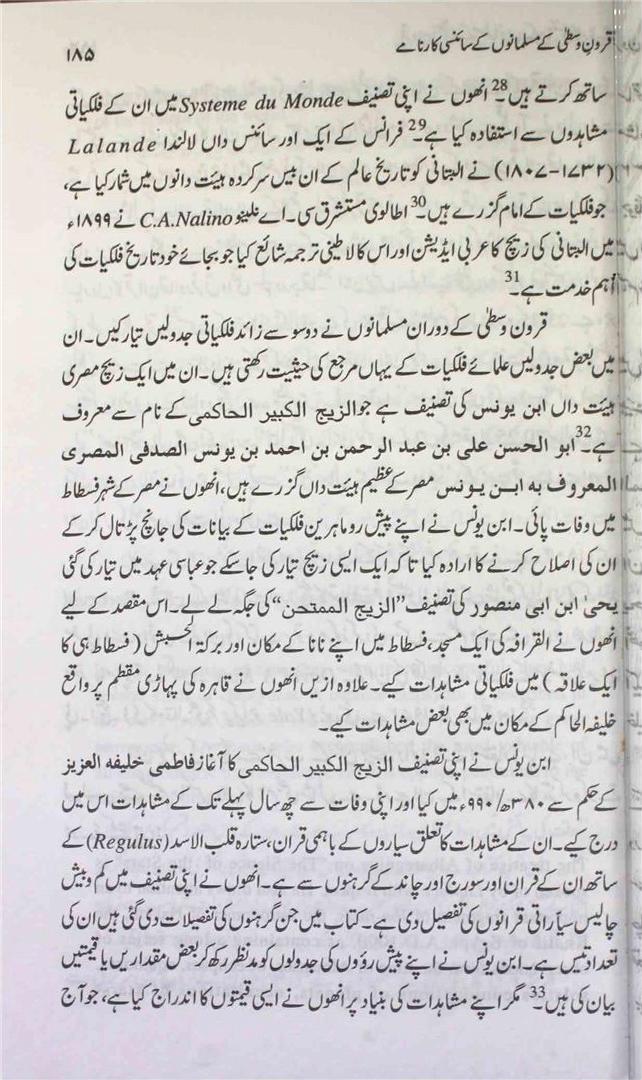 قرونِ وسطیٰ کے مسلمانوں کے سائنسی کارنامے
۱۸۵
ساتھ کرتے ہیں۔28 انھوں نے اپنی تصنیف Systeme du Monde میں ان کے فلکیاتی
مشاہدوں سے استفادہ کیا ہے۔29 فرانس کے ایک اور سائنس داں لالندا Lalande
(۱۷۳۲-۱۸۰۷) نے البتانی کو تاریخ عالم کے ان بیس سرکردہ ہیئت دانوں میں شمار کیا ہے،
جو فلکیات کے امام گزرے ہیں۔30 اطالوی مستشرق سی۔اے نلینو C.A.Nalino نے ۱۸۹۹ء
میں البتانی کی زیچ کا عربی ایڈیشن اور اس کا لاطینی ترجمہ شائع کیا جو بجائے خود تاریخ فلکیات کی
اہم خدمت ہے۔31
قرون وسطیٰ کے دوران مسلمانوں نے دو سو سے زائد فلکیاتی جدولیں تیار کیں۔ ان
میں بعض جدولیں علمائے فلکیات کے یہاں مرجع کی حیثیت رکھتی ہیں۔ ان میں ایک زیچ مصری
ہیئت داں ابن یونس کی تصنیف ہے جو الزیج الکبیر الحاکمی کے نام سے معروف
ہے۔32 ابو الحسن علی بن عبد الرحمن بن احمد بن یونس الصدفی المصری
المعروف به ابن یونس مصر کے عظیم ہیئت داں گزرے ہیں، انھوں نے مصر کے شہر فسطاط
میں وفات پائی۔ ابن یونس نے اپنے پیش رو ماہرین فلکیات کے بیانات کی جانچ پڑتال کر کے
ان کی اصلاح کرنے کا ارادہ کیا تا کہ ایک ایسی زیچ تیار کی جاسکے جو عباسی عہد میں تیار کی گئی
یحیٰ ابن ابی منصور کی تصنیف ”الزیج الممتحن“ کی جگہ لے لے۔ اس مقصد کے لیے
انھوں نے القرافہ کی ایک مسجد، فسطاط میں اپنے نانا کے مکان اور برکۃ الحبش (فسطاط ہی کا
ایک علاقہ) میں فلکیاتی مشاہدات کیے۔ علاوہ ازیں انھوں نے قاہرہ کی پہاڑی مقطم پر واقع
خلیفہ الحاکم کے مکان میں بھی بعض مشاہدات کیے۔
ابن یونس نے اپنی تصنیف الزیج الکبیر الحاکمی کا آغاز فاطمی خلیفہ العزیز
کے حکم سے ۳۸۰ھ/۹۹۰ء میں کیا اور اپنی وفات سے چھ سال پہلے تک کے مشاہدات اس میں
درج کیے۔ ان کے مشاہدات کا تعلق سیاروں کے باہمی قران، ستارہ قلب الاسد (Regulus) کے
ساتھ ان کے قران اور سورج اور چاند کے گرہنوں سے ہے۔ انھوں نے اپنی تصنیف میں کم و بیش
چالیس سیّاراتی قرانوں کی تفصیل دی ہے۔ کتاب میں جن گرہنوں کی تفصیلات دی گئی ہیں ان کی
تعداد تیس ہے۔ ابن یونس نے اپنے پیش رؤوں کی جدولوں کو مدنظر رکھ کر بعض مقداریں یا قیمتیں
بیان کی ہیں۔33 مگر اپنے مشاہدات کی بنیاد پر انھوں نے ایسی قیمتوں کا اندراج کیا ہے، جو آج